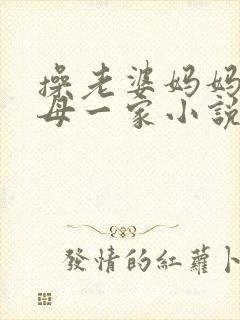 操老婆妈妈
母一家小説
發情的紅蘿卜